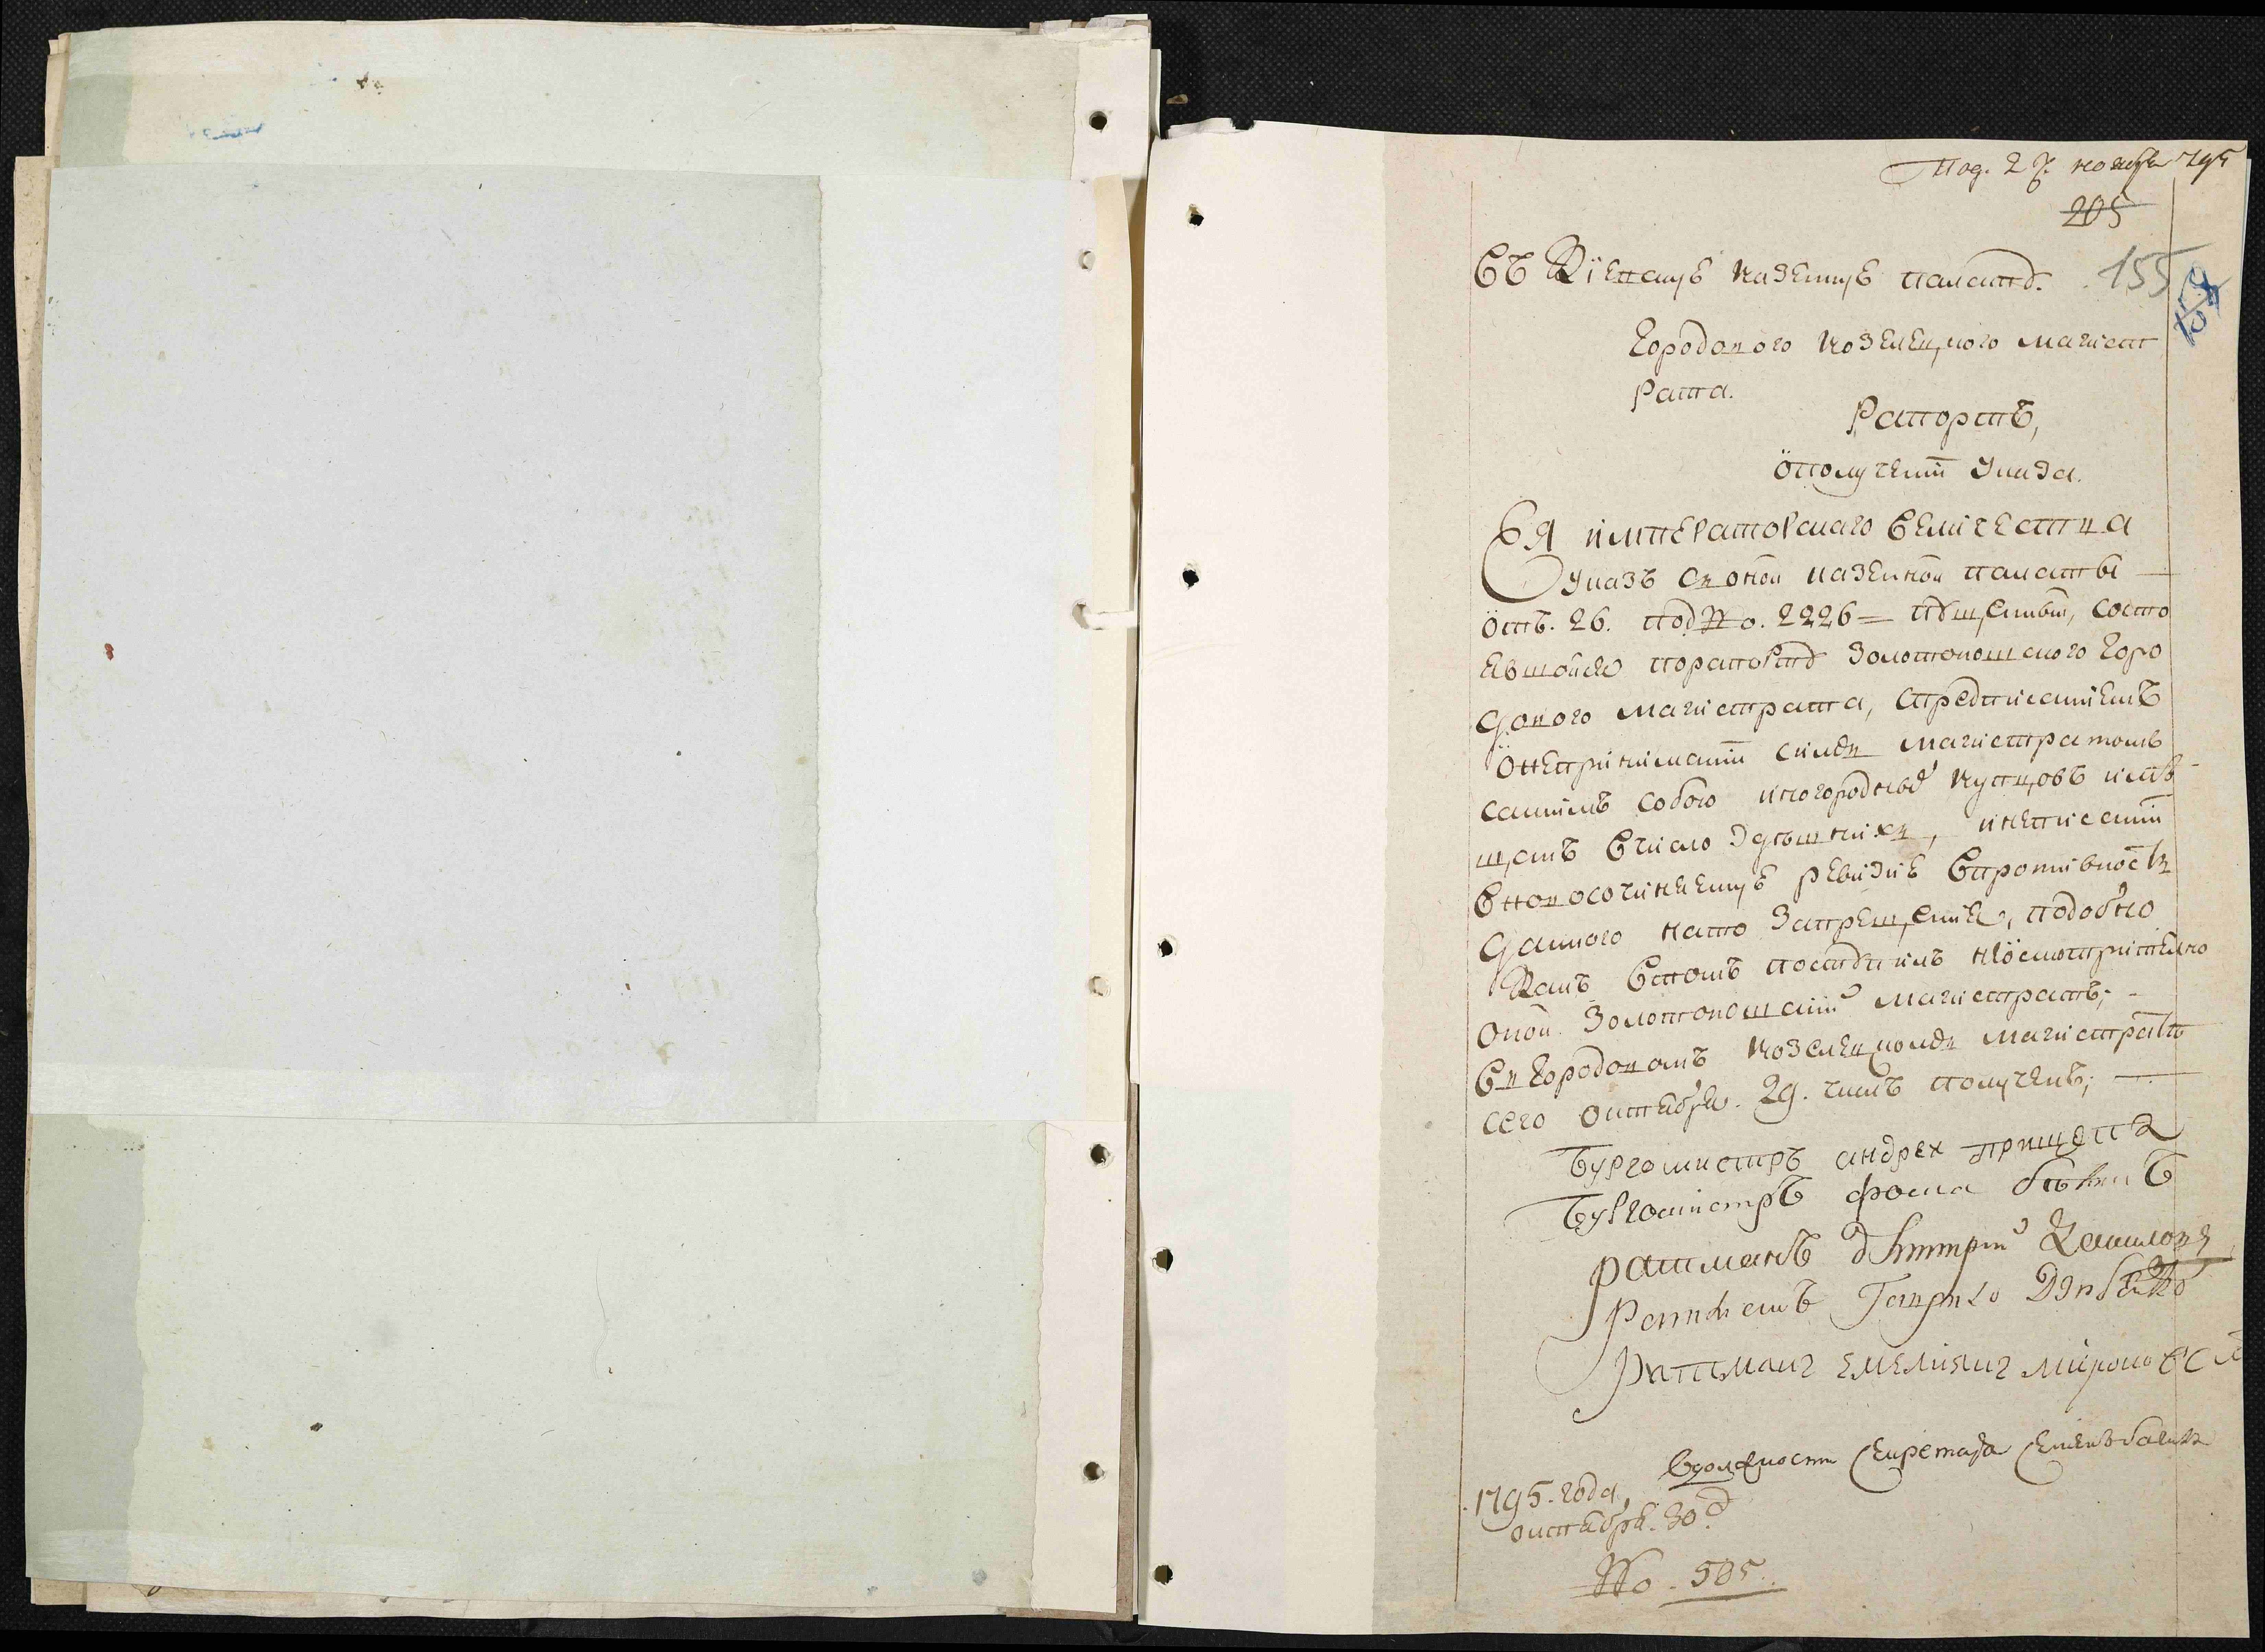 Под. 27. ноября 795
205
155
Въ Киевскую казенную палату.
Городового козелецкого магист
рата.
Рапортъ,
ополучении Указа.
Ея императорскаго Величества
указъ съ оной казенной палаты
отъ. 26. под №о. 2226 = пущенный, состо
явшойся порапорту Золотоношского горо
дового магистрата, спредписаниемъ
онепринимании симъ магистратомъ
самимъ собою иногородных купцовъ имѣ
щанъ вчисло здѣшнихъ, инеписании
вновосочиняемую ревизию впротивность
данного нато запрещения, подобно
какъ втомъ поступилъ неосмотрительно
оной Золотоношский магистратъ;
въ городовомъ козелецкомъ магистратѣ
сего октября. 29. числъ полученъ;
Бургомистръ андрей прищепа
Бургомистръ фома
ратманъ дмитрий
Ратманъ Гаврило
Ратманъ емелиянъ мироновс
Вдолжности Секретаря Семенъ
1795. года,
октября. 30 д
№о. 505.